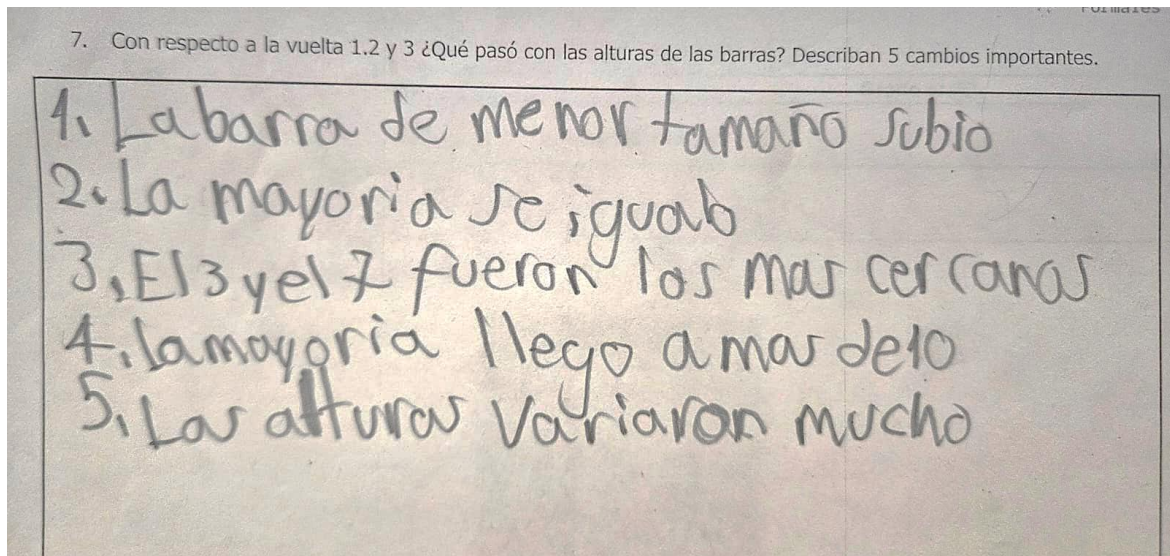 Formales
7. Con respecto a la vuelta 1,2 y 3 ¿Qué pasó con las alturas de las barras? Describan 5 cambios importantes.
1. La barra de menor tamaño subio
2. La mayoria se igualo
3. El 3 y el 7 fueron los mas cercanas
4. la mayoria llego a mas de 10
5. Las alturas variaron mucho